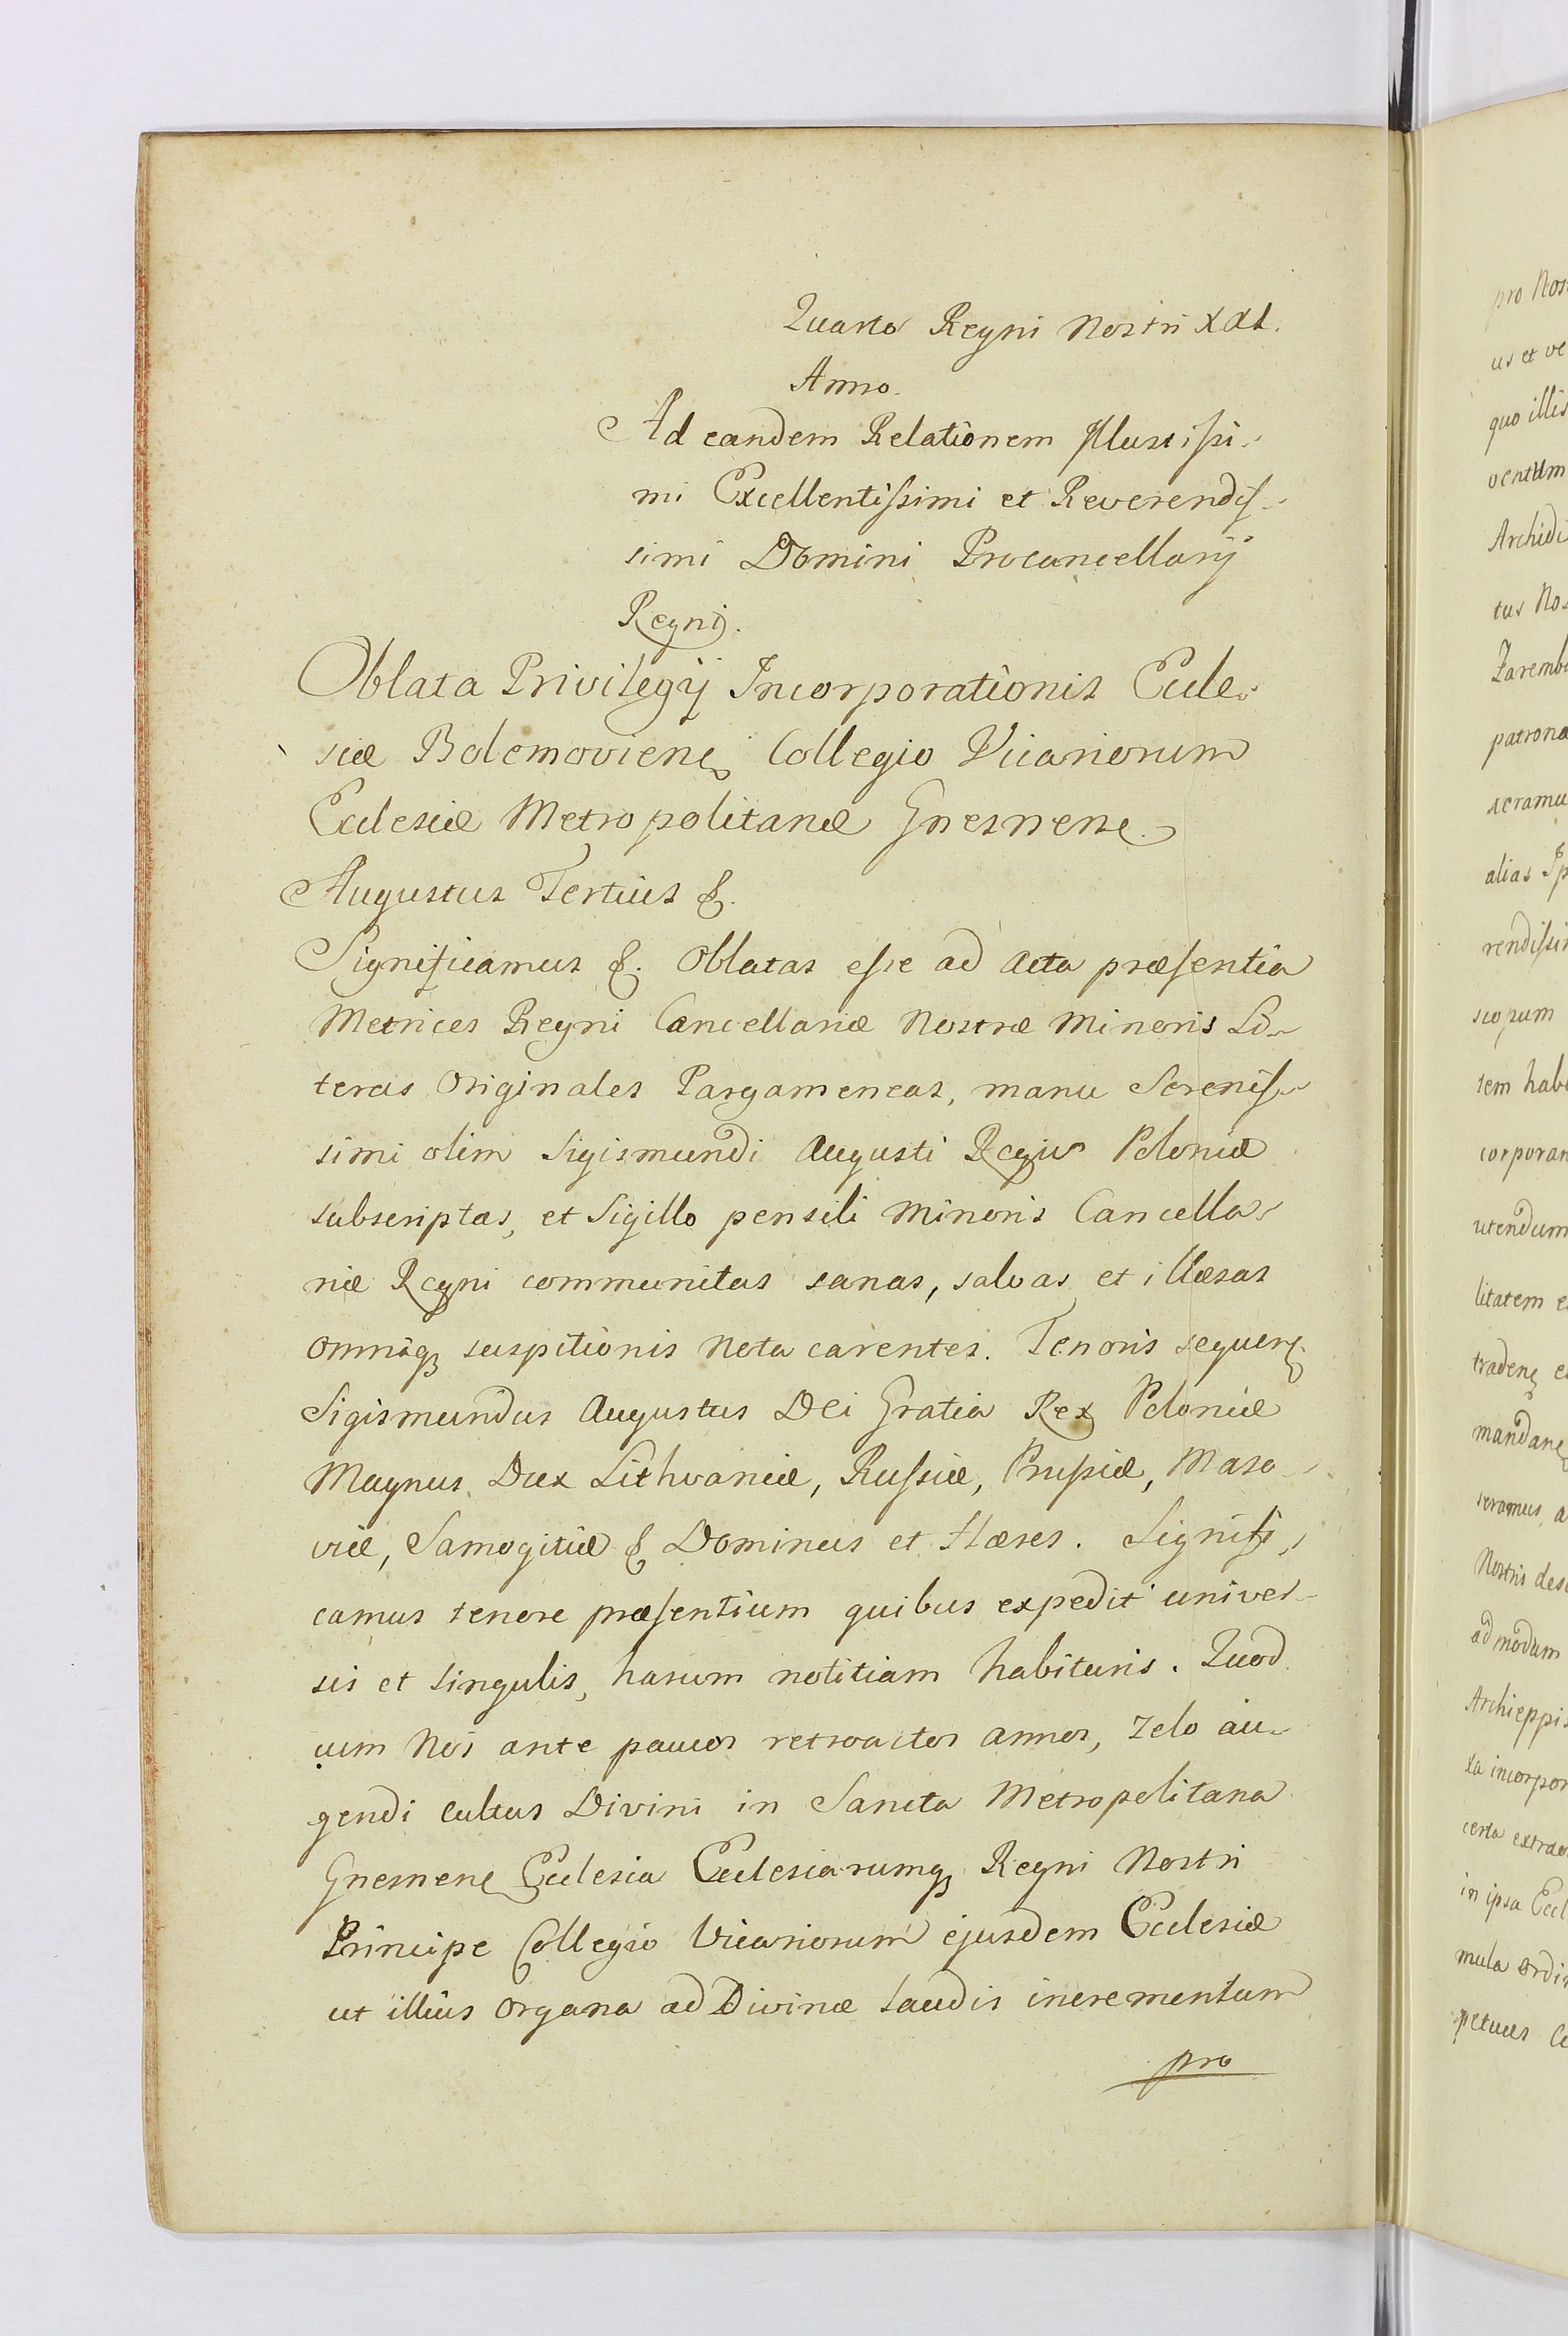 Quarto Regni Nostri XXI.
Anno.
Ad eandem Relationem Illustrissi-
mi Excellentissimi et Reverendis-
simi Domini Procancellarij
Regni.
Oblata Privilegij Incorporationis Eccle-
siæ Bolemoviens Collegio Vicariorum
Ecclesiæ Metropolitanæ Gnesnens.
Augustus Tertius &.
Significamus &. Oblatas esse ad Acta præsentia
Metrices Regni Cancellariæ Nostræ Minoris Li-
teras Originales Pargameneas, manu Serenis-
simi olim Sigismundi Augusti Regis Poloniæ
subscriptas, et Sigillo pensili Minoris Cancella-
riæ Regni communitas sanas, salvas et illæsas
omniq suspitionis nota carentes. Tenoris sequen.
Sigismundus Augustus Dei Gratia Rex Poloniæ
Magnus Dux Lithvaniæ, Russiæ, Prussiæ, Maso-
viæ, Samogitiæ & Dominus et Hæres. Signifi-
camus tenore præsentium quibus expedit univer-
sis et singulis, harum notitiam habituris. Quod
cum Nos ante paucos retroactos annos, zelo au-
gendi Cultus Divini in Sancta Metropolitana
Gnesnens Ecclesia Ecclesiarumq Regni Nostri
Principe Collegio Vicariorum ejusdem Ecclesiæ
ut illius Organa ad Divinæ Laudis incrementum
pro
pro Nos
us et ve
quo illis
ventum
Archidi
tus Nos
Zaremb
patrona
scramu
alias Ip
rendissi
scopum
tem hab
corporan
utendum
litatem e
traden e
mandan
seramus a
Nostris des
ad modum
Archieppis
ta incorpor
certa extra
in ipsa Eccl
mula ordin
petuus C